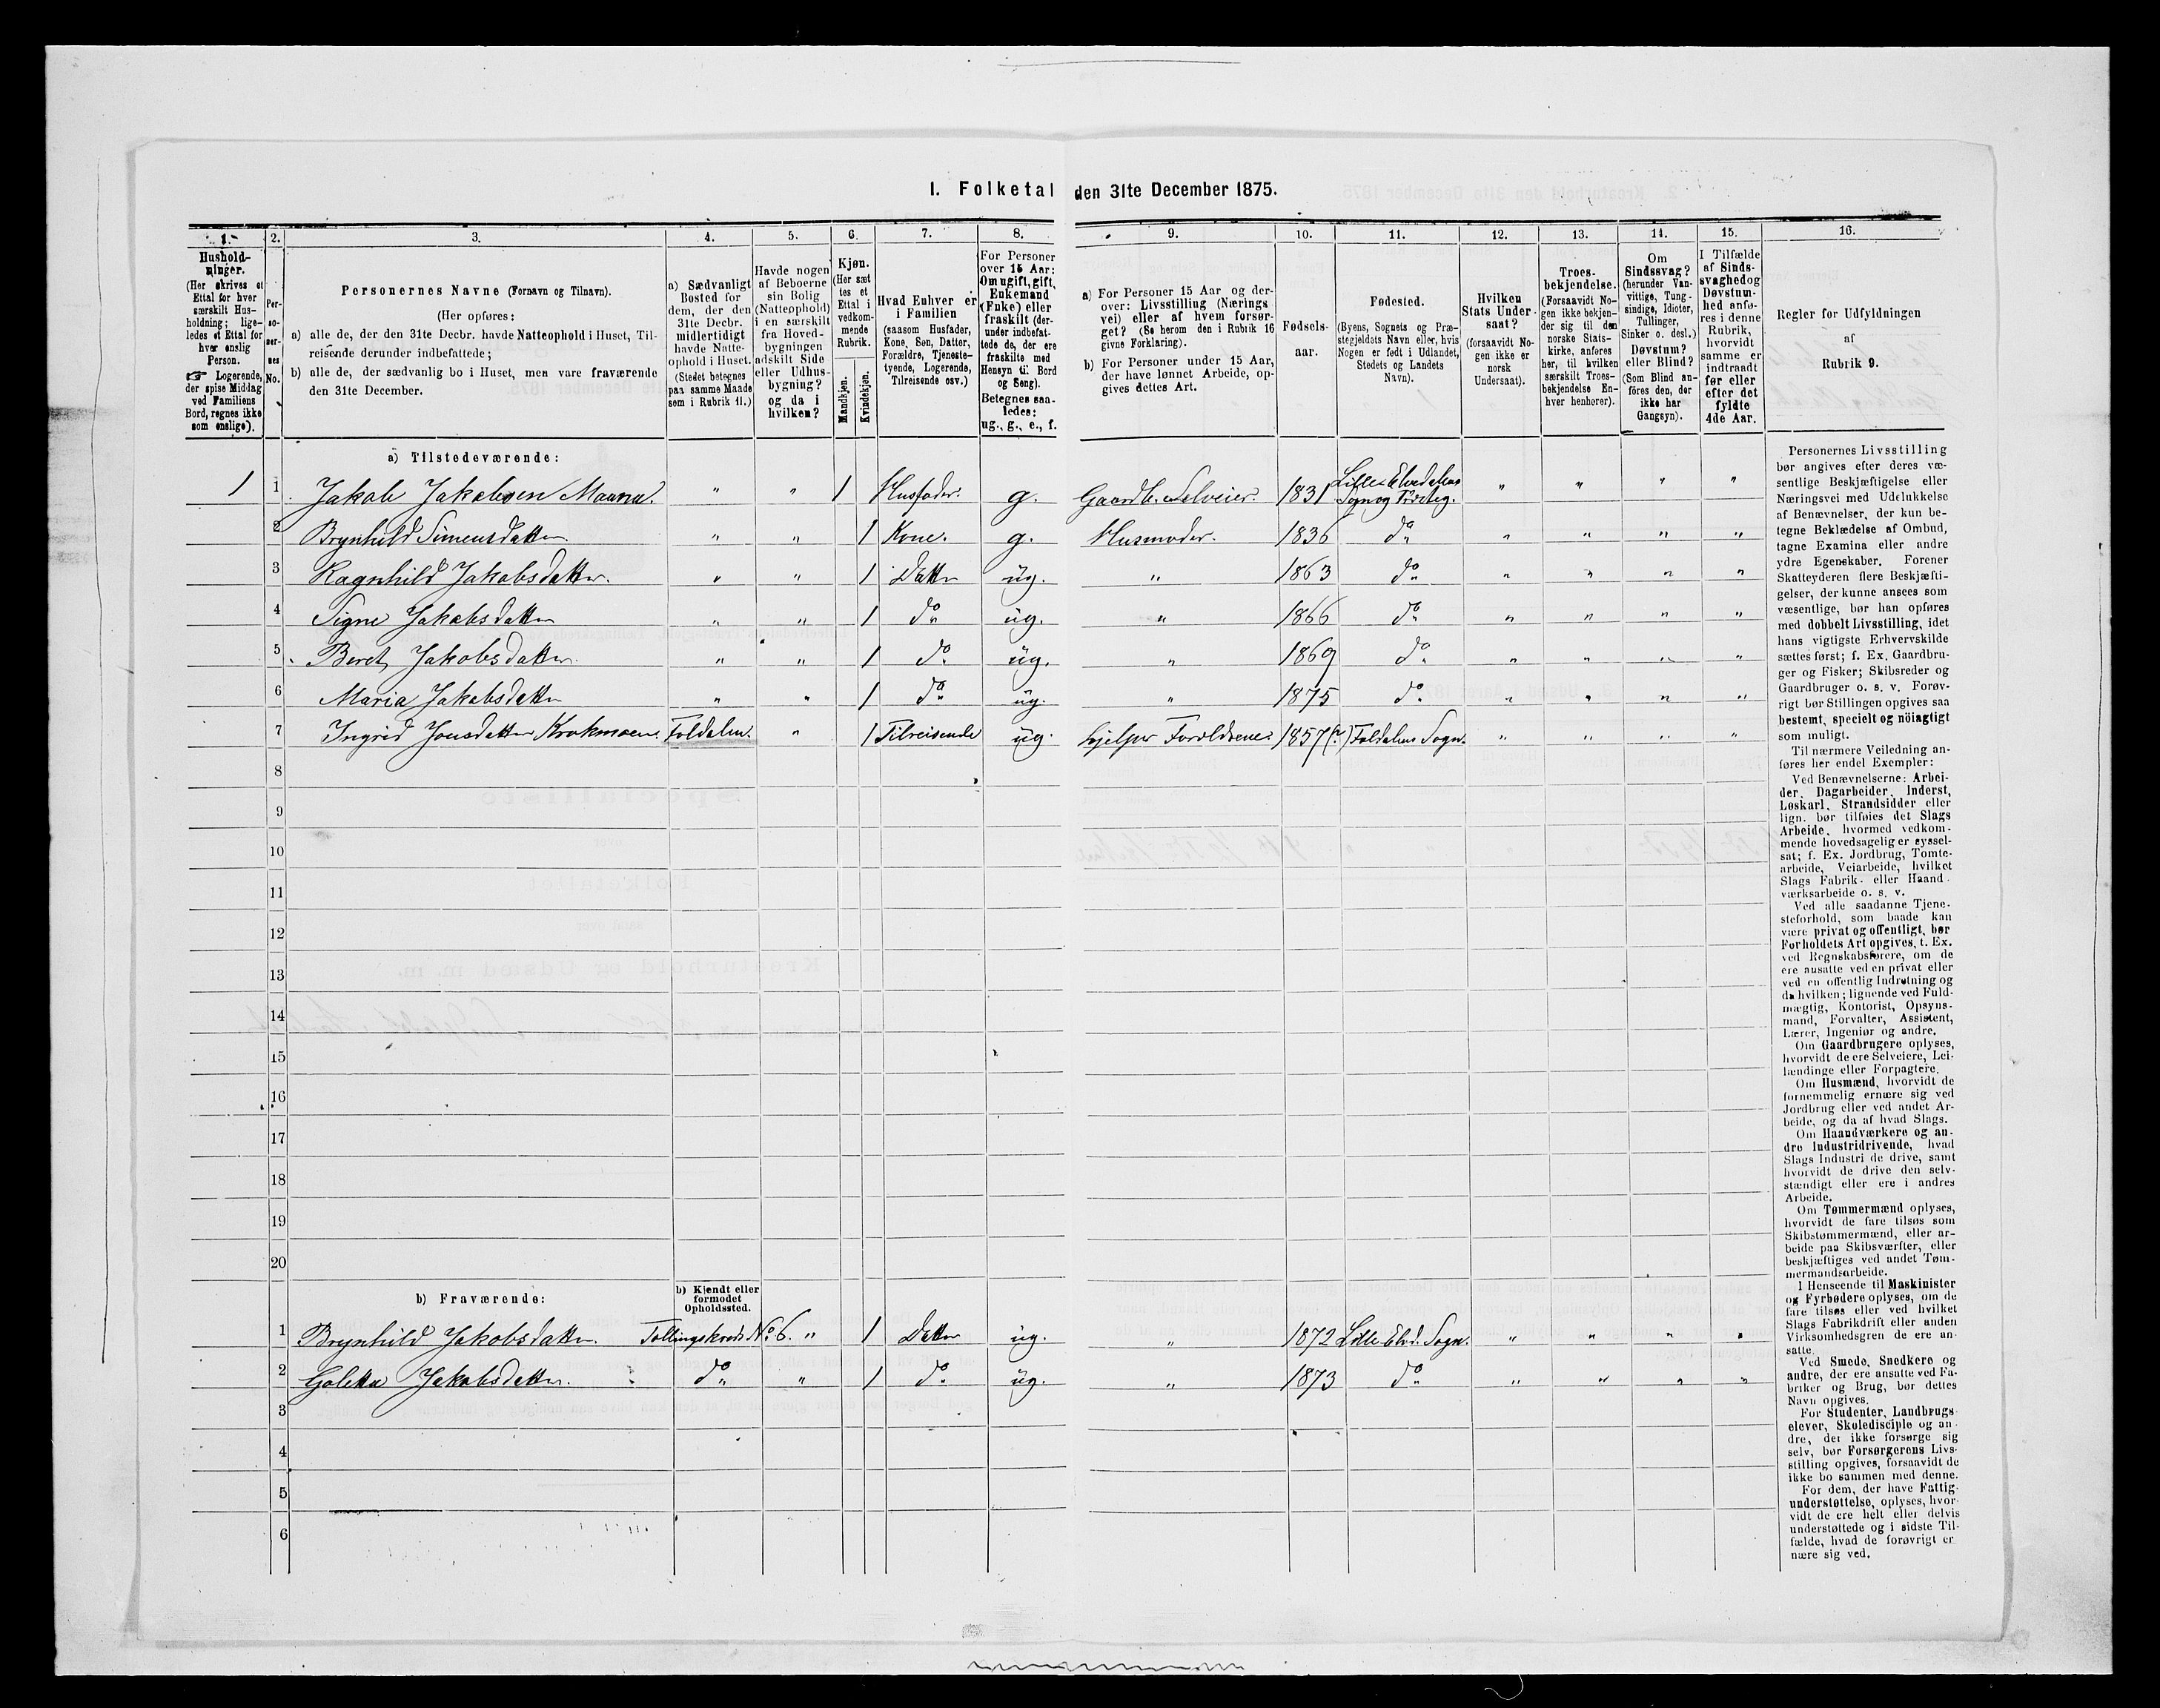 I. Folketal den 31te December 1875.
1. 2. 3. 4. 5. 6. 7. 8. 9. 10. 11. 12. 13. 14. 15. 16.
Hushold-
ninger.
(Her skrives et
Ettal for hver
særskilt Hus-
holdning; lige-
ledes et Ettal for
hver enslig
Person.
☞ Logerende,
der spise Middag
ved Familiens
Bord, regnes ikke
som enslige).
Per-
so-
ner-
nes
No.
Personernes Navne (Fornavn og Tilnavn).
(Her opføres:
a) alle de, der den 31te Decbr. havde Natteophold i Huset, Til-
reisende derunder indbefattede;
b) alle de, der sædvanlig bo i Huset, men vare fraværende
den 31te December.
a) Sædvanligt
Bosted for
dem, der den
31te Decbr.
midlertidigt
havde Natte-
ophold i Huset.
(Stedet betegnes
paa samme Maade
som i Rubrik 11.)
Havde nogen
af Beboerne
sin Bolig
(Natteophold)
i en særskilt
fra Hoved-
bygningen
adskilt Side
eller Udhus-
bygning?
og da i
hvilken?
Kjøn.
(Her sæt
tes et
Ettal i
vedkom-
mende
Rubrik.
Mandkjøn.
Kvindekjøn.
Hvad Enhver er
i Familien
(saasom Husfader,
Kone, Søn, Datter,
Forældre, Tjeneste-
tyende, Logerende,
Tilreisende osv.)
For Personer
over 15 Aar:
Om ugift, gift,
Enkemand
(Enke) eller
fraskilt (der-
under indbefat-
tede de, der ere
fraskilte med
Hensyn til Bord
og Seng).
Betegnes saa-
ledes:
ug., g., e., f.
a) For Personer 15 Aar og der-
over: Livsstilling (Nærings
vei) eller af hvem forsør-
get? (Se herom den i Rubrik 16
givne Forklaring).
b) For Personer under 15 Aar,
der have lønnet Arbeide, op-
gives dettes Art.
Fødsels-
aar.
Fødested.
(Byens, Sognets og Præ-
stegjeldets Navn eller, hvis
Nogen er født i Udlandet,
Stedets og Landets
Navn).
Hvilken
Stats Under-
saat?
(forsaavidt No-
gen ikke er
norsk
Undersaat).
Troes-
bekjendelse.
(Forsaavidt No-
gen ikke bekjen-
der sig til den
norske Stats-
kirke, anføres
her, til hvilken
særskilt Troes-
bekjendelse En-
hver henhører).
Om
Sindssvag?
(herunder Van-
vittige, Tung-
sindige, Idioter,
Tullinger,
Sinker o. desl.)
Døvstum?
eller Blind?
(Som Blind an-
føres den, der
ikke har
Gangsyn).
I Tilfælde
af Sinds-
svaghed og
Døvstum-
hed anfø-
res i denne
Rubrik,
hvorvidt
samme er
indtraadt
før eller
efter det
fyldte
4de Aar.
Regler for Udfyldningen
af
Rubrik 9.
a) Tilstedeværende:
1 1 Jakob Jakobsen Maana. " " 1 Husfader. g. Gaardb. Selveier. 1831 Lille Elvedalens
Sogn og Præsteg. " " " "
2 Brynhild Simensdatter. " " 1 Kone. g. Husmoder. 1836 do " " " "
3 Ragnhild Jakobsdatter. " " 1 Datter ug. " 1863 do " " " "
4 Signe Jakobsdatter " " 1 do ug. " 1866 do " " " "
5 Beret Jakobsdatter. " " 1 do ug. " 1869 do " " " "
6 Maria Jakobsdatter " " 1 do ug. " 1875 do " " " "
7 Ingrid Jonsdatter Krokmoen. Foldalen. " 1 Tilreisende ug. hjelper Forældrene. 1857 (?) Foldalens Sogn. " " " "
8
9
10
11
12
13
14
15
16
17
18
19
20
b) Fraværende:
b) Kjendt eller
formodet
Opholdssted.
1 Brynhild Jakobsdatter. Tællingskreds No 6. " 1 Datter ug. " 1872 Lille Elvd. Sogn. " " " "
2 Goletta Jakobsdatter. do " 1 do ug. " 1873 do " " " "
3
4
5
6
Personernes Livsstilling
bør angives efter deres væ-
sentlige Beskjæftigelse eller
Næringsvei med Udelukkelse
af Benævnelser, der kun be-
tegne Beklædelse af Ombud,
tagne Examina eller andre
ydre Egenskaber. Forener
Skatteyderen flere Beskjæfti-
gelser, der kunne ansees som
væsentlige, bør han opføres
med dobbelt Livsstilling, idet
hans vigtigste Erhvervskilde
sættes først; f. Ex. Gaardbru-
ger og Fisker; Skibsreder og
Gaardbruger o. s. v. Forøv-
rigt bør Stillingen opgives saa
bestemt, specielt og nöiagtigt
som muligt.
Til nærmere Veiledning an-
føres her endel Exempler:
Ved Benævnelserne: Arbei-
der, Dagarbeider, Inderst,
Løskarl, Strandsidder eller
lign. bør tilføies det Slags
Arbeide, hvormed vedkom-
mende hovedsagelig er syssel-
sat; f. Ex. Jordbrug, Tomte-
arbeide, Veiarbeide, hvilket
Slags Fabrik- eller Haand-
værksarbeide o. s. v.
Ved alle saadanne Tjene-
steforhold, som baade kan
være privat og offentligt, bør
Forholdets Art opgives, t. Ex.
ved Regnskabsførere, om de
ere ansatte ved en privat eller
ved en offentlig Indretning og
da hvilken; lignende ved Fuld-
mægtig, Kontorist, Opsyns-
mand, Forvalter, Assistent,
Lærer, Ingeniør og andre.
Om Gaardbrugere oplyses,
hvorvidt de ere Selveiere, Lei-
lændinge eller Forpagtere.
Om Husmænd, hvorvidt de
fornemmelig ernære sig ved
Jordbrug eller ved andet Ar-
beide, og da af hvad Slags.
Om Haandværkere og an-
dre Industridrivende, hvad
Slags Industri de drive, samt
hvorvidt de drive den selv-
stændigt eller ere i andres
Arbeide.
Om Tømmermænd oplyses,
hvorvidt de fare tilsøs som
Skibstømmermænd, eller ar-
beide paa Skibsværfter, eller
beskjæftiges ved andet Tøm-
mermandsarbeide.
I Henseende til Maskinister
og Fyrbødere oplyses, om de
fare tilsøs eller ved hvilket
Slags Fabrikdrift eller anden
Virksomhedsgren de ere an-
satte.
Ved Smede, Snedkere og
andre, der ere ansatte ved Fa-
briker og Brug, bør dettes
Navn opgives.
For Studenter, Landbrugs-
elever, Skoledisciple og an-
dre, der ikke forsørge sig
selv, bør Forsørgerens Livs-
stilling opgives, forsaavidt de
ikke bo sammen med denne.
For dem, der have Fattig-
understøttelse, oplyses, hvor-
vidt de ere helt eller delvis
understøttede og i sidste Til-
fælde, hvad de forøvrigt er-
nære sig ved.